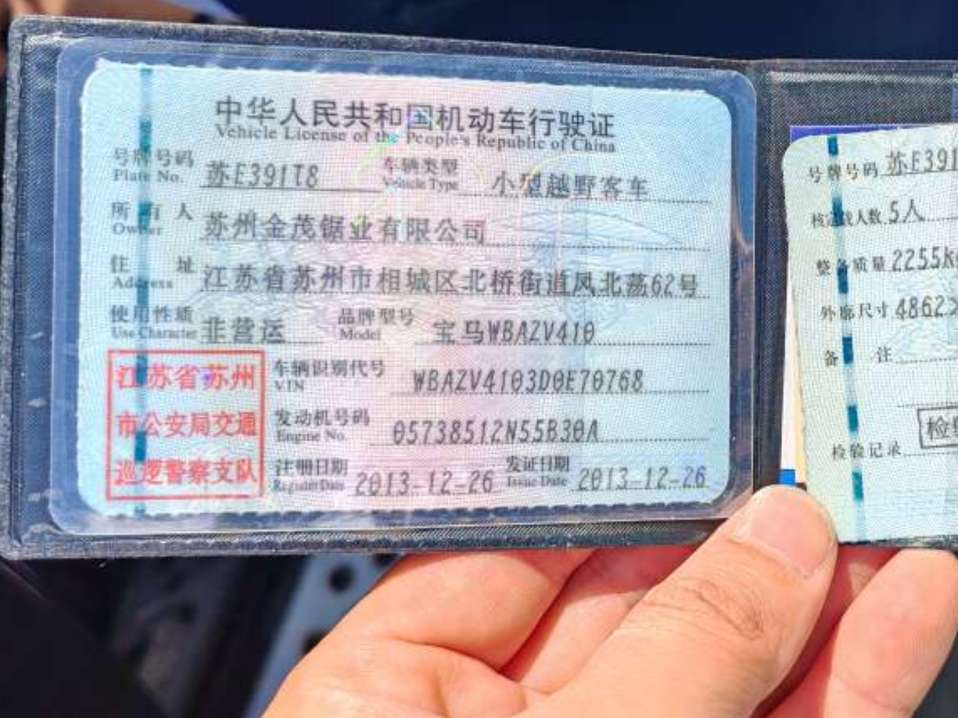 中华人民共和国机动车行驶证
Vehicle License of the People's Republic of China
号牌号码 苏E391T8 车辆类型 小型越野客车
Plate No. Vehicle Type
所有人 苏州金茂锯业有限公司
Owner
住址 江苏省苏州市相城区北桥街道凤北荡62号
Address
使用性质 非营运 品牌型号 宝马WBAZV410
Use Character Model
江苏省苏州
市公安局交通
巡逻警察支队
车辆识别代号 WBAZV4103D0E70768
VIN
发动机号码 05738512N55B30A
Engine No.
注册日期 2013-12-26 发证日期 2013-12-26
Register Date Issue Date
号牌号码 苏E391
核定载人数 5人
整备质量 2255k
外廓尺寸 4862
备注
检验记录
检